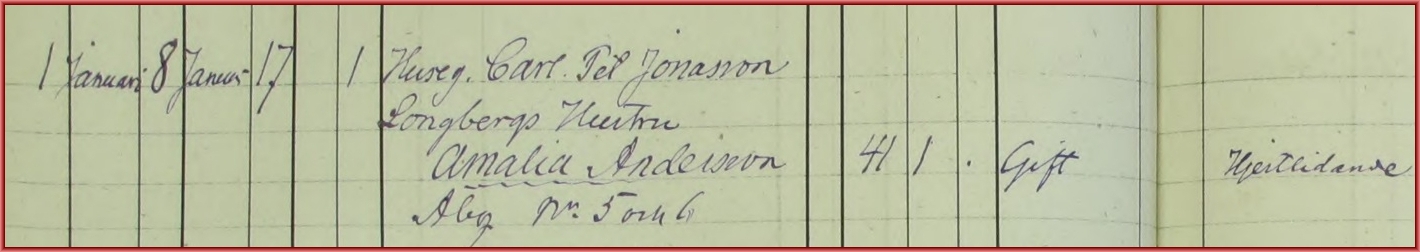 1 Januari 8 Januari 17 1 Huseg. Carl. Pet Jonasson
Longbergs Hustru
Amalia Andersson 41 1 . Gift Hjertlidande
Abg No. 5 och 6